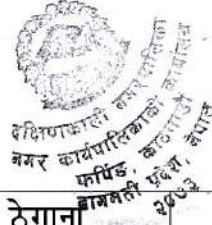 दक्षिणकाली नगरपालिका
नगर कार्यपालिकाको कार्यालय
फर्पिङ, काठमाडौं
बागमती प्रदेश, नेपाल
२०७३
ठेगाना